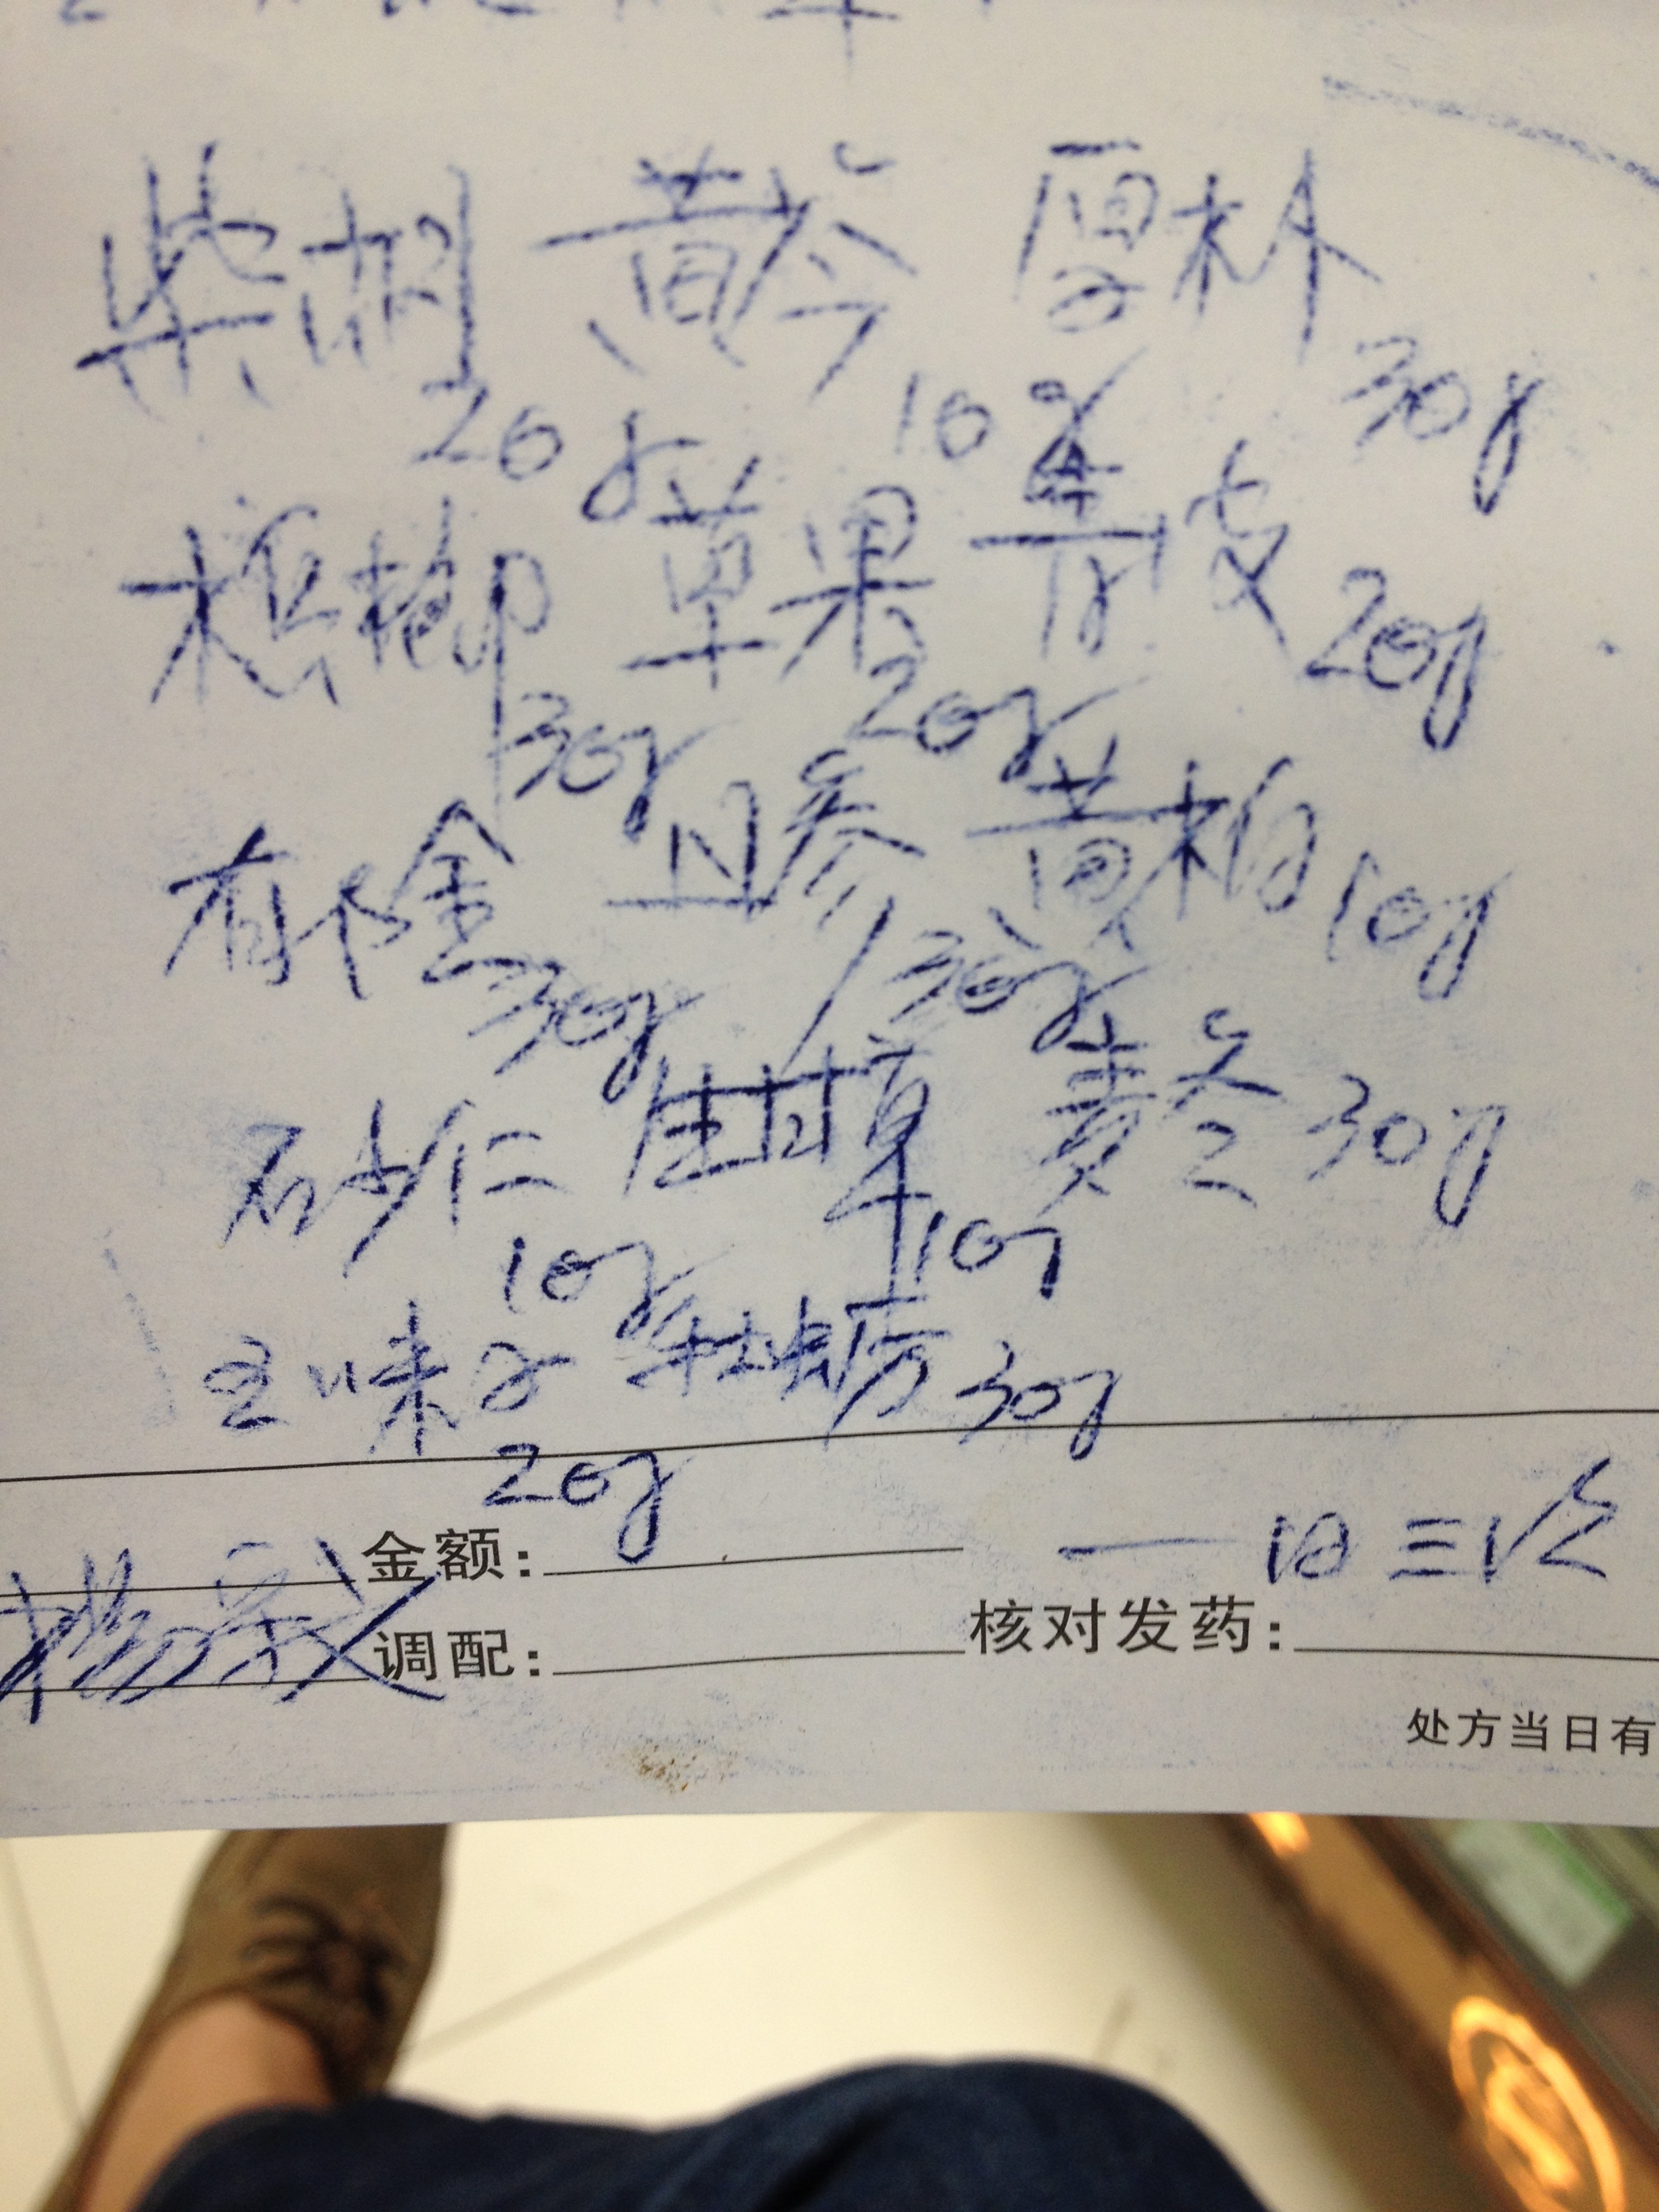 柴胡 黄芩 厚朴
20g 10g 30g
槟榔 草果 青皮
30g 20g 20g
郁金 丹参 黄柏
30g 30g 10g
砂仁 生甘草 麦冬
10g 10g 30g
五味子 30g
20g
一日三次
金额：
调配：
核对发药：
处方当日有